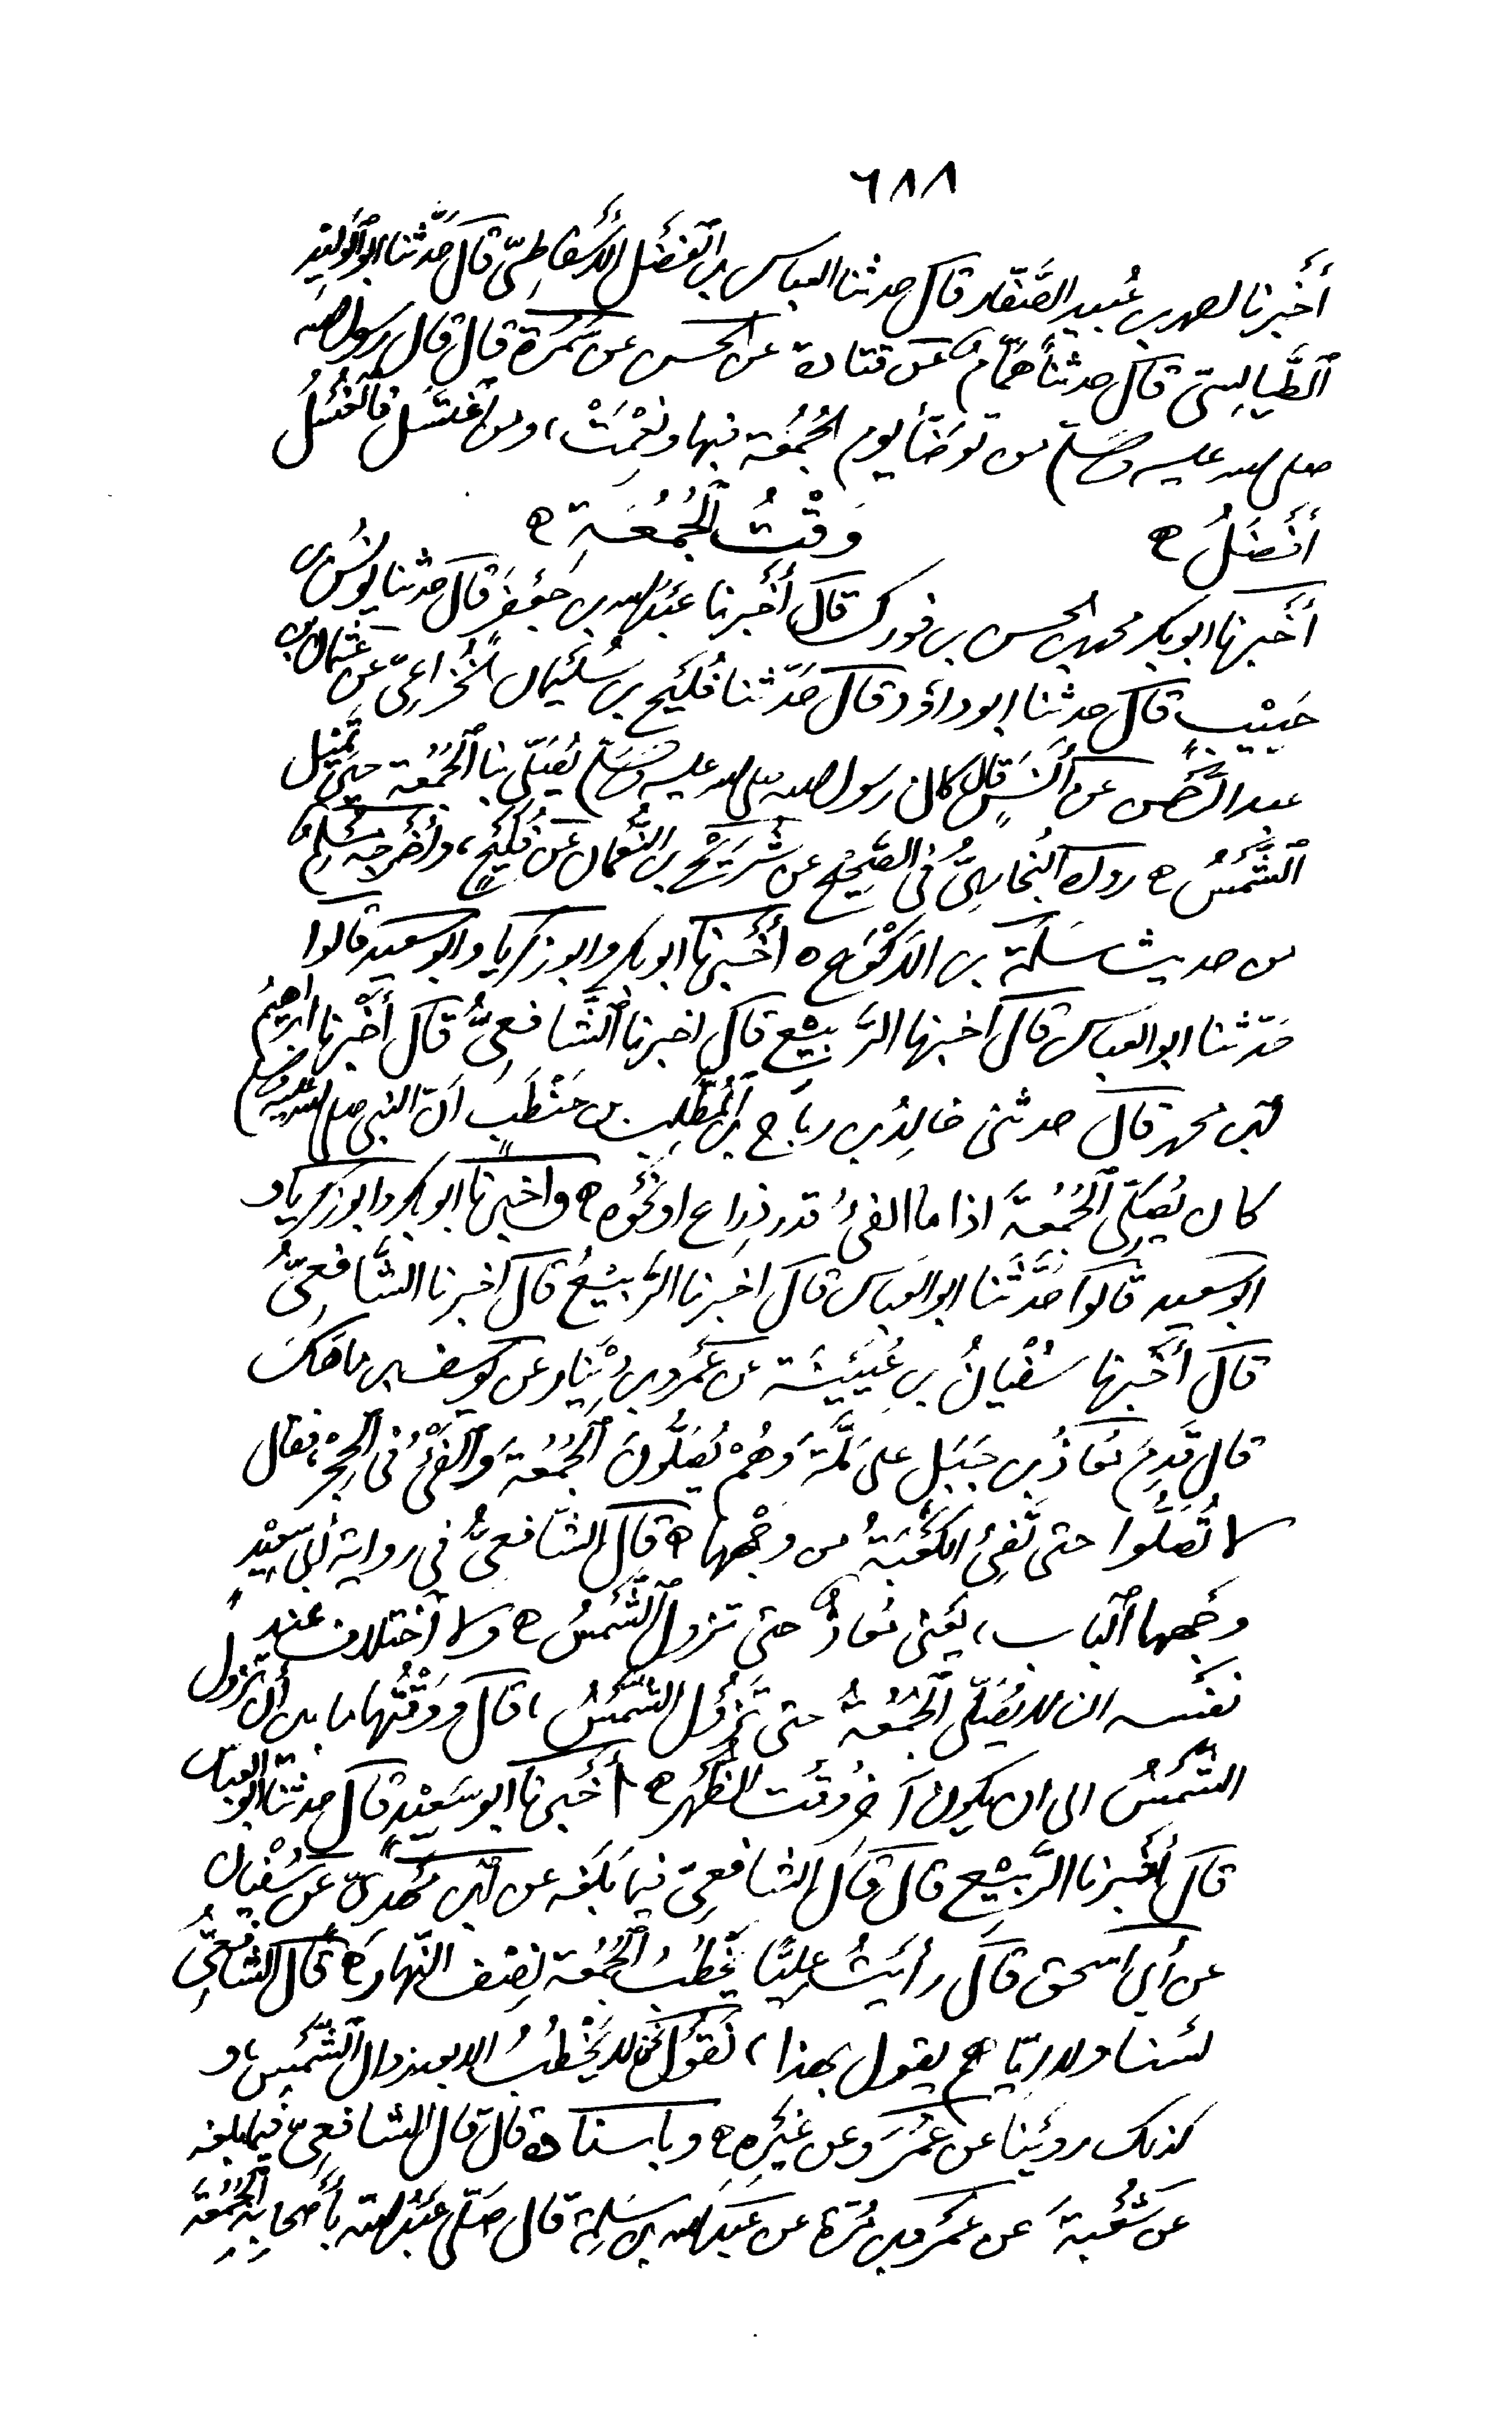 ٦٨٨
أَخْبرنا احمد بن عُبيد الصَّفّار قال حدثنا العباس بن الفَضْل الأسْفاطِيّ قال حدَّثنا ابو الوَليد
الطَّيالِسيّ قال حدثنا همّامٌ عن قتادة عن الحسن عن سَمُرَة قال قال رسول الله
صلى الله عليه وسلم من توضّأ يوم الجُمُعَة فبها ونِعْمَتْ، ومن اغتَسَل فالغُسْلُ
أَفْضَلُ ه وَقْتُ الجُمُعَةِ ه
أَخْبرنا ابو بكر محمد بن الحسن بن فورك قال أَخْبرنا عبدُ الله بن جَعْفَر قال حدثنا يونُس بن
حَبِيْب قال حدثنا ابو داؤد قال حَدّثنا فُلَيْح بن سُلَيْمان الخُزاعِيّ عن عثمان بن
عبد الرَّحْمن عن أَنَسٍ قال كان رسول الله صلى الله عليه وسلم يُصَلّى بنا الجُمُعَة حين تَمِيْل
الشَّمْسُ ه رواه البُخارِيُّ فى الصَّحِيْح عن سُرَيْج بن النُّعمان عَنْ فُلَيْحٍ، وأَخْرجه مُسْلِمٌ
من حديث سَلَمَة بن الاَكْوَع ه أَخْبرنا ابو بكر وابو زكريا وابو سعيد قالوا
حدّثنا ابو العباس قال أخبرنا الرَّبِيْع قال اخبرنا الشَّافِعِيُّ قال أَخْبرنا ابراهِيْمُ
بن محمد قال حدثنى خالِدُ بن رباح عن المُطَّلِب بن حَنْطَبٍ أَنّ النبي صلى الله عليه وسلم
كان يُصَلّى الجُمُعَةَ اذا فاء الفىءُ قدر ذِراع او نَحْوه ه واخبرنا ابو بكر وابو زكريا و
ابو سعيد قالوا حَدَّثَنا ابو العَباس قال اخبرنا الرَّبِيْعُ قال أخبرنا الشَّافِعِيّ
قال أَخْبرنا سُفْيانُ بن عُيَيْنَة عن عَمْرو بن دِيْنار عن يُوسف بن ماهك
قال قَدِمَ مُعاذُ بن جَبَل على مَكَّة وَهُمْ يُصَلُّونَ الجُمُعَة وَالفَيْءُ فى الحِجْر، فقال
لا تُصَلُّوا حتى تَفِئَ الكَعْبَةُ من وَجْهها ه قال الشّافعيُّ فى رواية أبى سَعِيْدٍ
وجهها الباب، يَعْنى مُعاذٌ حتى تزول الشَّمْسُ ه ولا اختلاف عند
نفسه ان لا يُصَلّى الجُمُعَةُ حتى تَزُوْل الشَّمْسُ، قال ووَقْتُها ما بين أن تزول
الشَّمْسُ الى ان يكون آخر وقت الظُّهْر ه أَخْبرنا ابو سَعِيْدٍ قال حدثنا ابو العباس
قال أخْبرنا الرَّبِيْع قال قال الشافعيّ فيما بَلَغَه عن ابْن مَهْدىّ عن سُفْيان
عن أبى اسحق قال رأيتُ عليًّا يَخْطُبُ الجُمُعَة نِصْف النّهار ه قال الشافِعِيُّ
لسنا ولا ايّاهم يقول بهذا، نَقُوْل نحن لا يُخْطَبُ الا بعد زوال الشَّمْسِ، و
كذلك رويْنا عن عُمَرَ وعن غَيْرِه ه وباسناده قال قال الشافعيّ فيما بلغه
عن شُعْبَةَ عن عَمْرو بن مُرّة عن عَبْدِ الله بن سَلِمَة قال صَلّى عَبْدُ الله بأَصْحابِهِ الجُمُعَةَ